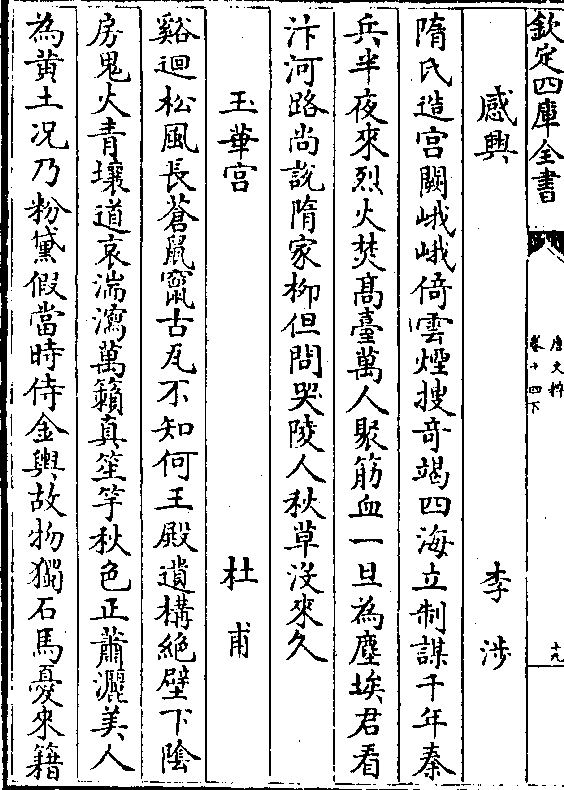 欽定四庫全書
唐文粹
卷十四下
十九
感興
李涉
隋氏造宫闕峨峨倚雲煙搜奇竭四海立制謀千年秦
兵半夜來烈火焚髙臺萬人聚筋血一旦為塵埃君看
汴河路尚說隋家柳但問哭陵人秋草沒來久
玉華宫
杜甫
谿迴松風長蒼鼠竄古瓦不知何王殿遺構絶壁下隂
房鬼火青壊道哀湍瀉萬籟真笙竽秋色正蕭灑美人
為黄土况乃粉黛假當時侍金輿故物獨石馬憂來籍